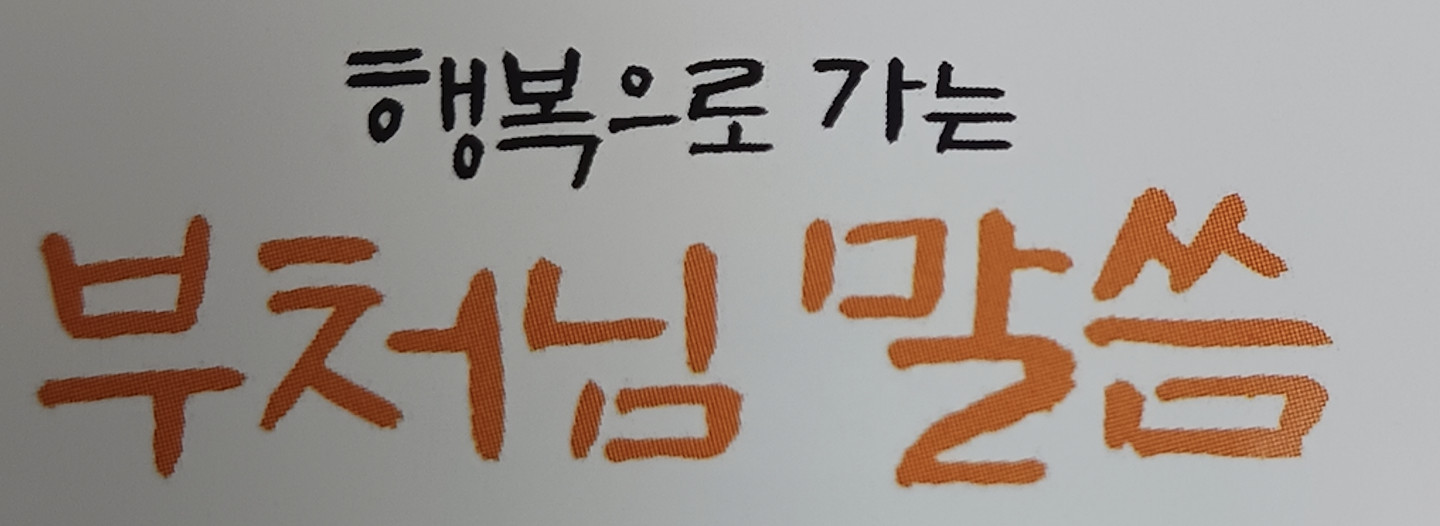 행복으로 가는
부처님 말씀